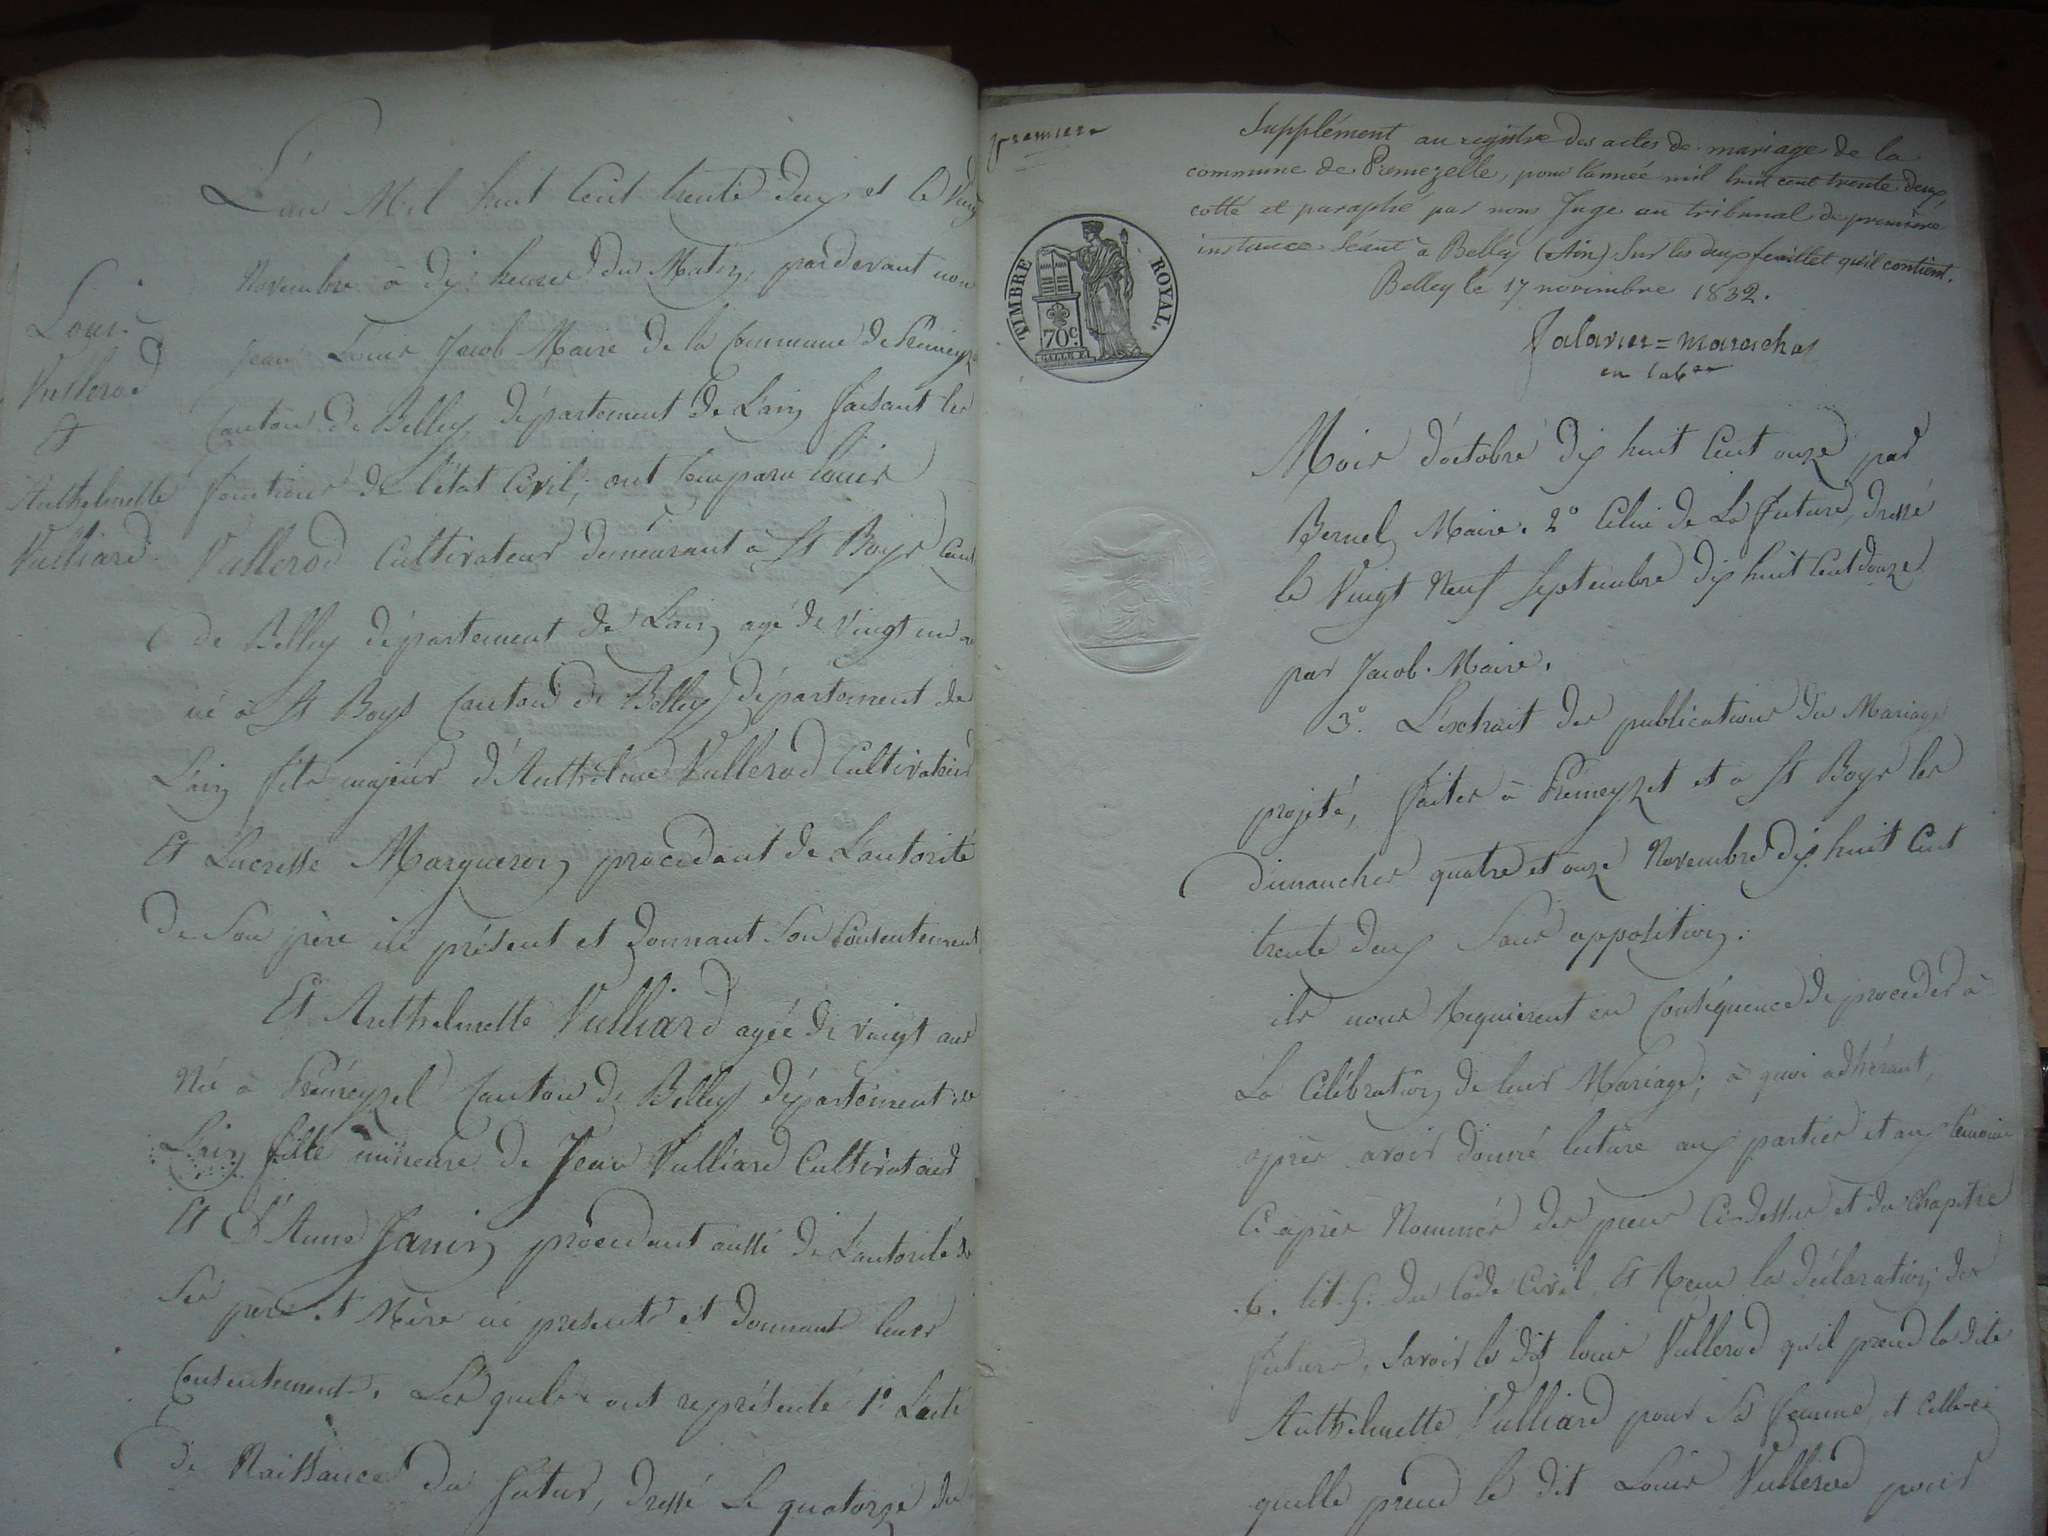 L'an Mil huit Cent trente deux et le Vingt
Novembre à dix heures du Matin, pardevant nous
Jean Louis Jacob Maire de la Commune de Prémeyzel
Canton de Belley département de L'ain faisant les
fonctions de l'état Civil, ont Comparu Louis
Vullerod Cultivateur demeurant à St Boys Canton
de Belley département de L'ain agé de vingt un an
né à St Boys Canton de Belley département de
L'ain fils majeur d'Anthelme Vullerod Cultivateur
Et Lucresse Marqueron procédant de L'autorité
de Son père ici présent et donnant Son Consentement
Et Anthelmette Vulliard agée de vingt ans
Née à Prémeyzel Canton de Belley département de
L'ain fille mineure de Jean Vulliard Cultivateur
Et d'Anne Janin procédant aussi de L'autorité de
Ses père et Mère ici présents et donnant leur
Consentement. Les quels ont représenté 1º L'acte
de Naissance du futur, dressé Le quatorze du
Louis
Vullerod
Et
Anthelmette
Vulliard
premier
Supplément au registre des actes de mariage de la
commune de Premezelle, pour l'année mil huit cent trente deux,
cotté et paraphé par nous Juge au tribunal de première
instance séant à Belley (Ain) sur les deux feuillet qu'il contient.
Belley le 17 novembre 1832.
TIMBRE ROYAL.
70c
Mois d'octobre dix huit Cent onze par
Bernel Maire. 2º Celui de La future, dressé
le Vingt Neuf Septembre dix huit Cent douze
par Jacob Maire.
3º. L'extrait des publications du Mariage
projeté, faites à Prémeyzel et à St Boys les
dimanches quatre et onze Novembre dix huit Cent
trente deux Sans opposition.
ils nous Requierent en Conséquence de procéder à
La Célébration de leur Mariage; à quoi adhérant,
après avoir donné lecture aux parties et aux témoins
Ci après Nommés des pieces Ci-dessus et du chapitre
6. tit. 5. du Code Civil Et Reçu la déclaration des
futurs, Savoir le dit Louis Vullerod qu'il prend la dite
Anthelmette Vulliard pour Sa femme, et Celle-ci
quelle prend le dit Louis Vullerod pour